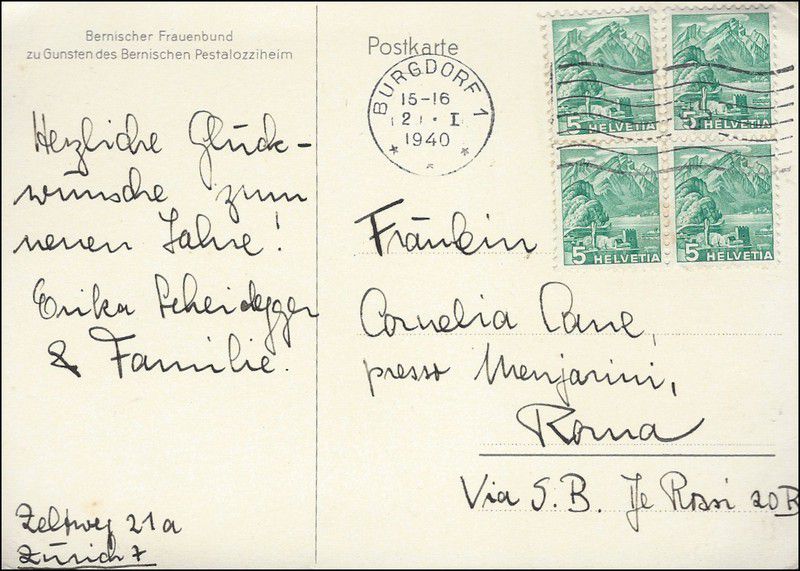 Bernischer Frauenbund
zu Gunsten des Bernischen Pestalozziheim
Herzliche Glück-
wünsche zum
neuen Jahre!
Erika Scheidegger
& Familie.
Zeltweg 21a
Zürich 7
Postkarte
BURGDORF 1
15-16
1940
5 HELVETIA
5 HELVETIA
5 HELVETIA
5 HELVETIA
Fräulein
Cornelia Cane,
presso Menjarini,
Roma
Via S.B. De Rossi 20B